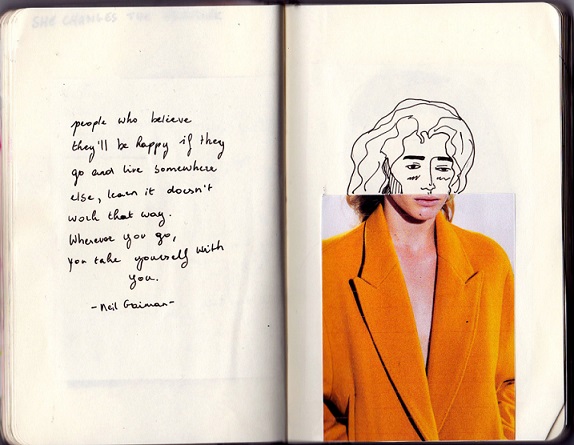 SHE CHANGES THE
people who believe
they'll be happy if they
go and live somewhere
else, learn it doesn't
work that way.
Wherever you go,
you take yourself with
you.
-Neil Gaiman-